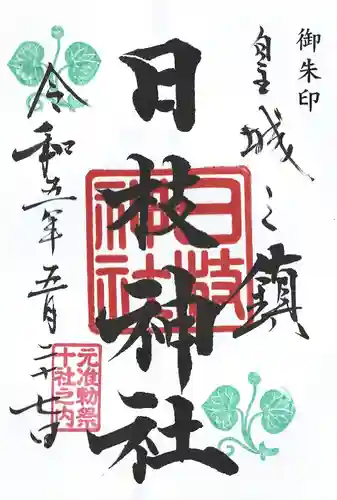 御朱印
皇城之鎮
日枝神社
日枝神社
令和五年五月二十七日
元准勅祭
十社之内